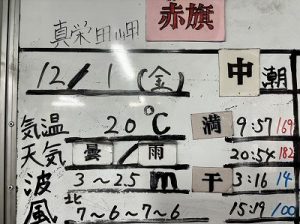 真栄田岬 赤旗
12/1(金) 中潮
気温 20℃ 満 9:57 169
天気 曇/雨 20:54 182
波 3~2.5m 干 3:16 14
風 北 7~6~7~6 15:19 100